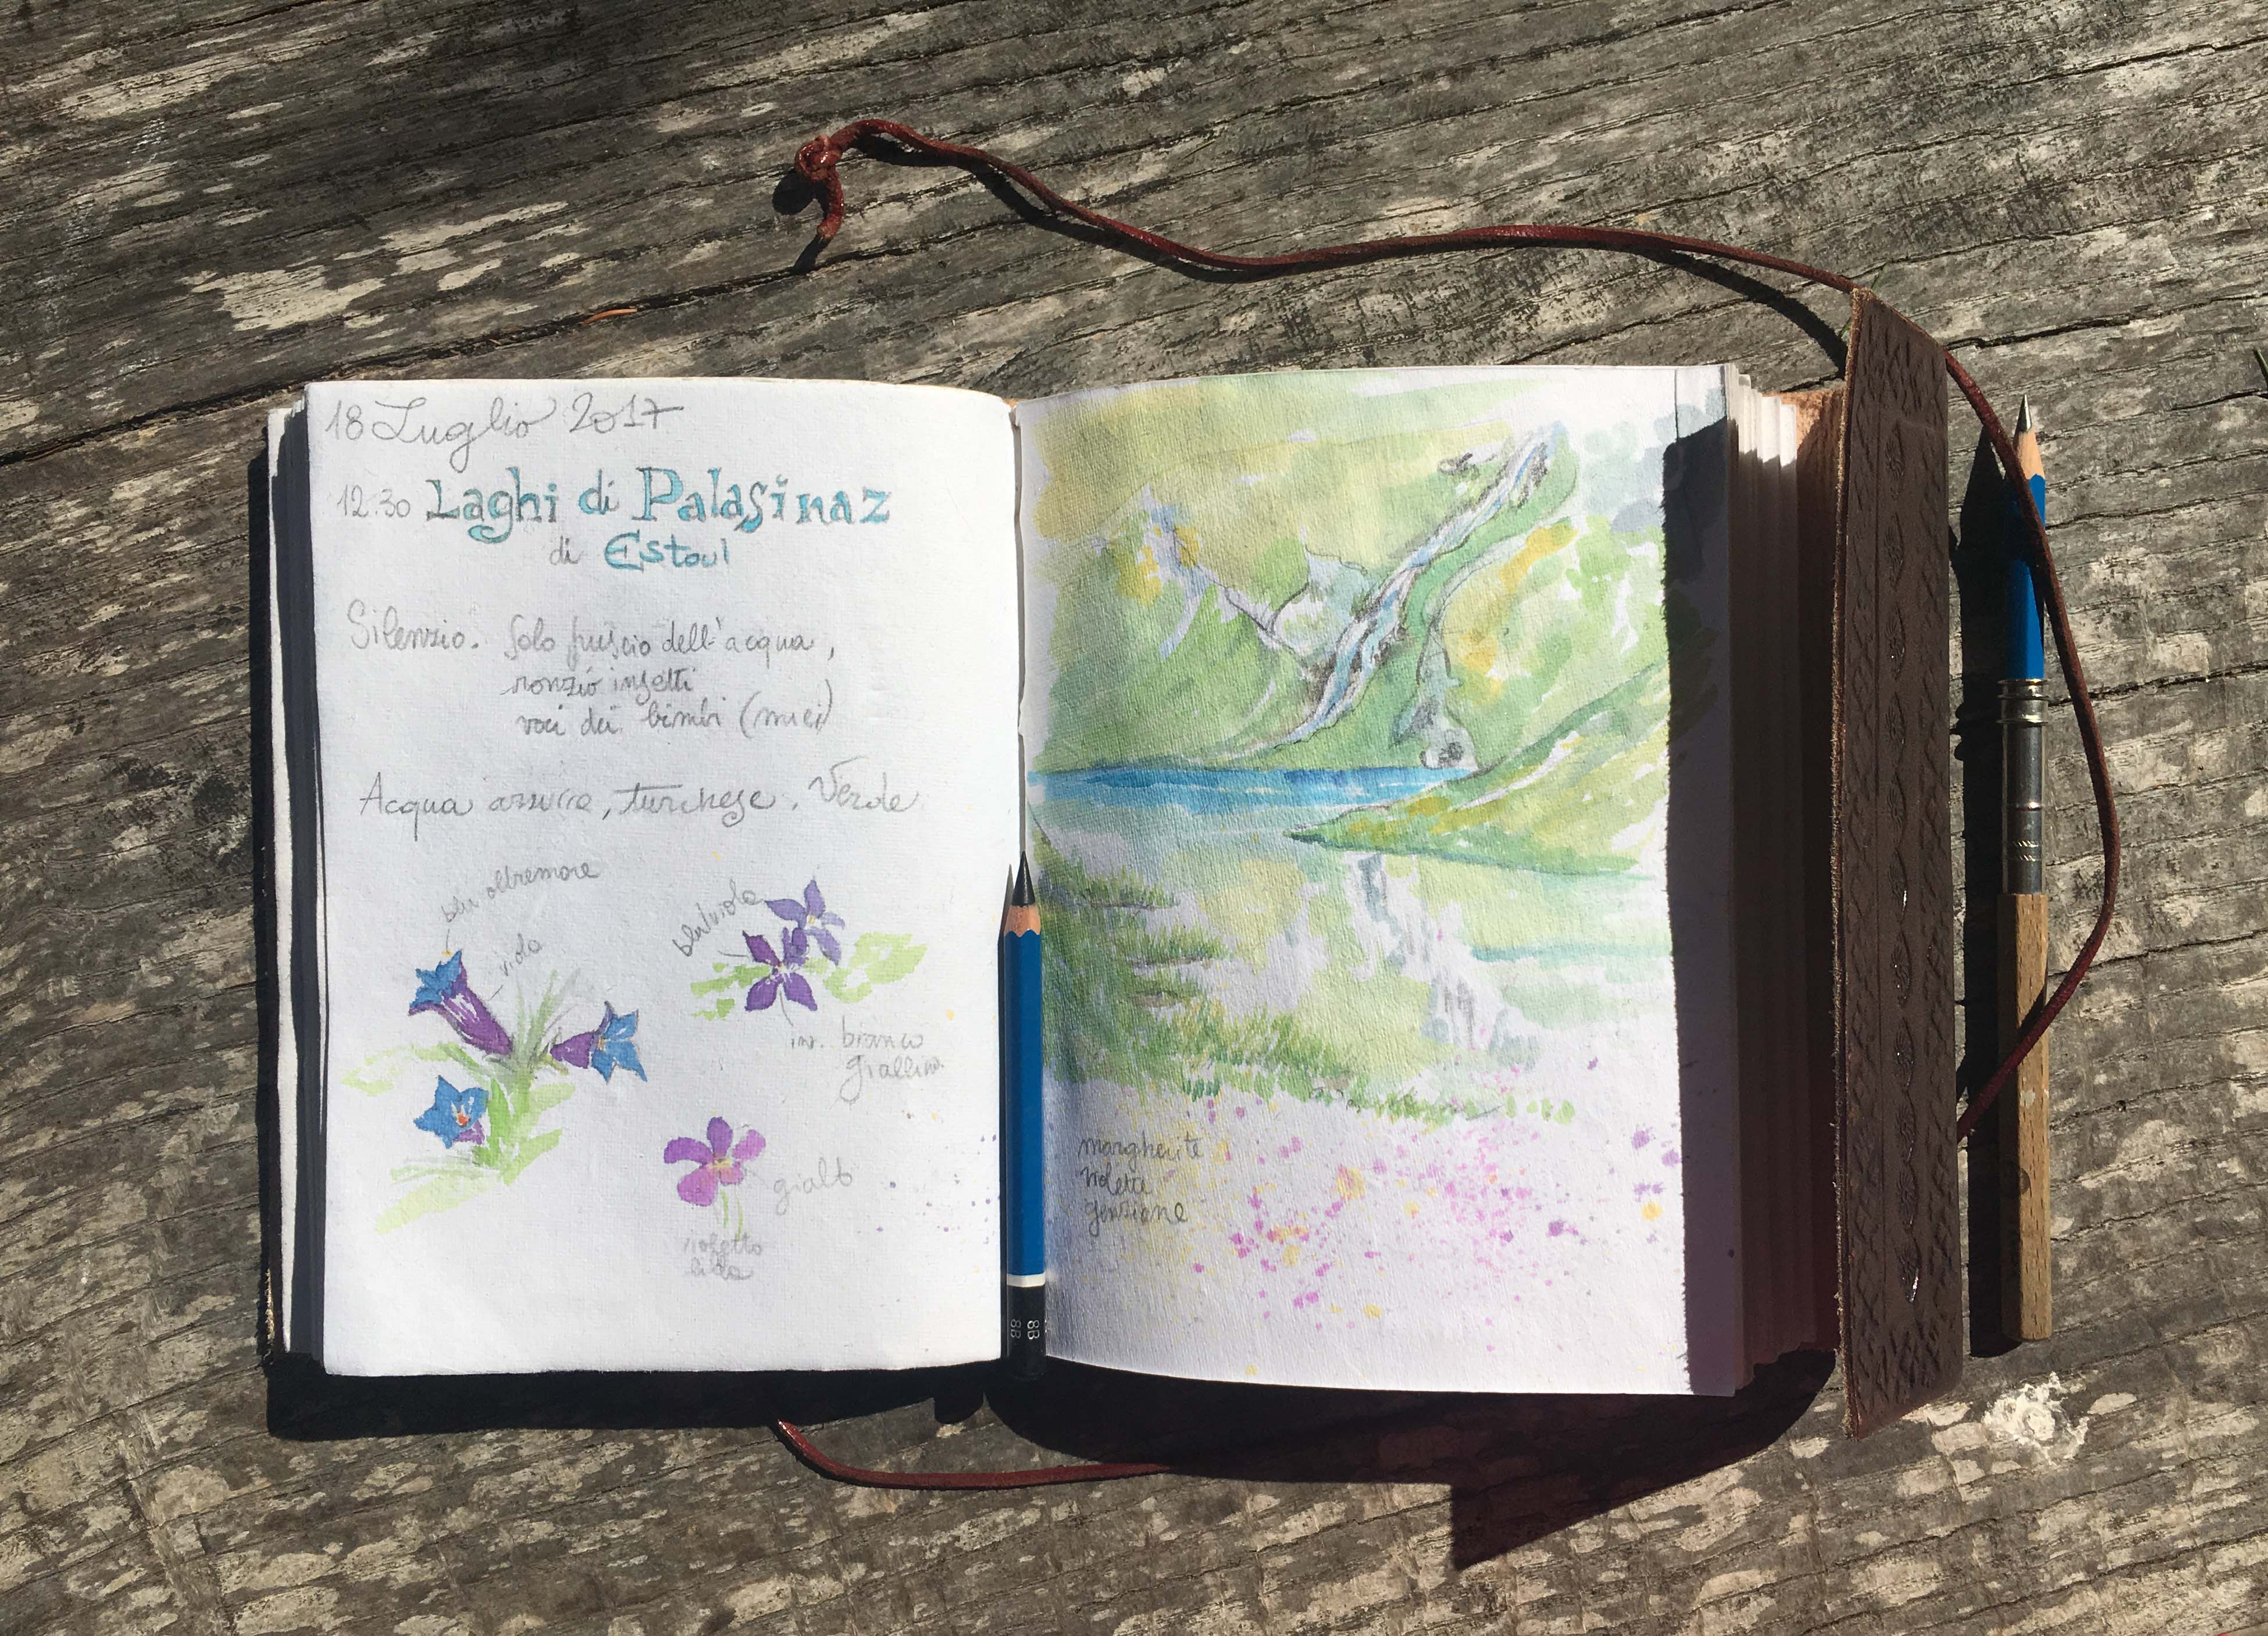 18 Luglio 2017
12.30 Laghi di Palasinaz
di Estoul
Silenzio. Solo fruscio dell'acqua,
ronzio insetti
voci dei bimbi (miei)
Acqua azzurra, turchese. Verde
blu oltremare
viola
bluviola
int. bianco
giallino
giallo
violetto
lilla
margherite
violette
genziane
8B 8B